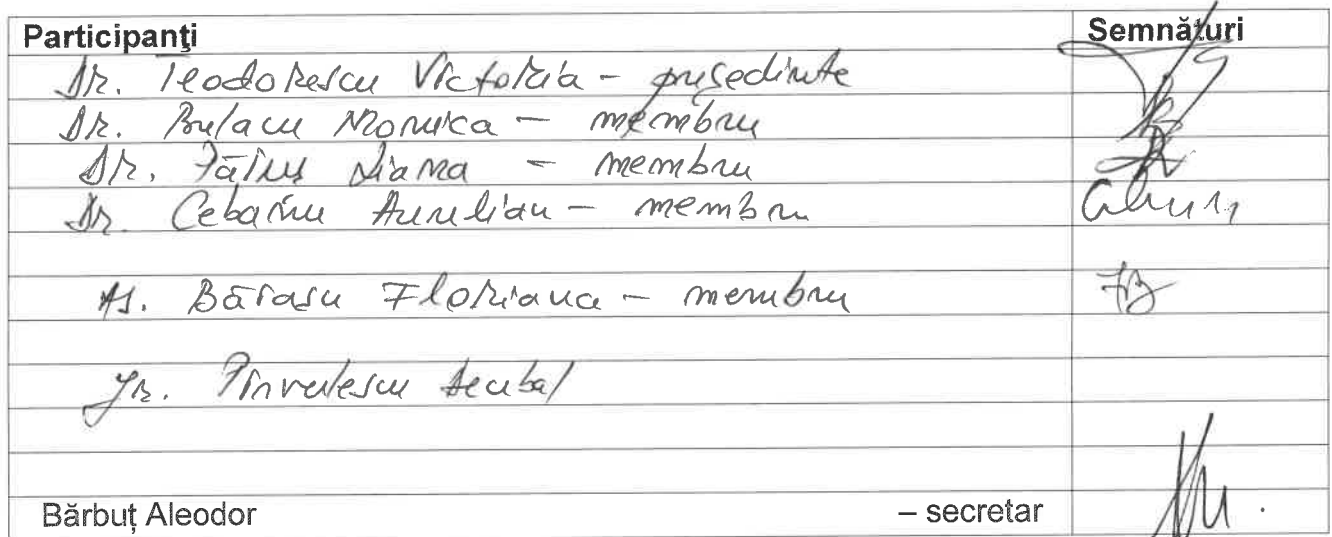 Participanţi Semnături
Dr. Teodorescu Victoria – președinte
Dr. Bulacu Monica – membru
Dr. Diana – membru
Dr. Aurelian – membru
As. Bărașu Floriana – membru
Jr. Pîrvulescu Decebal
Bărbuț Aleodor – secretar